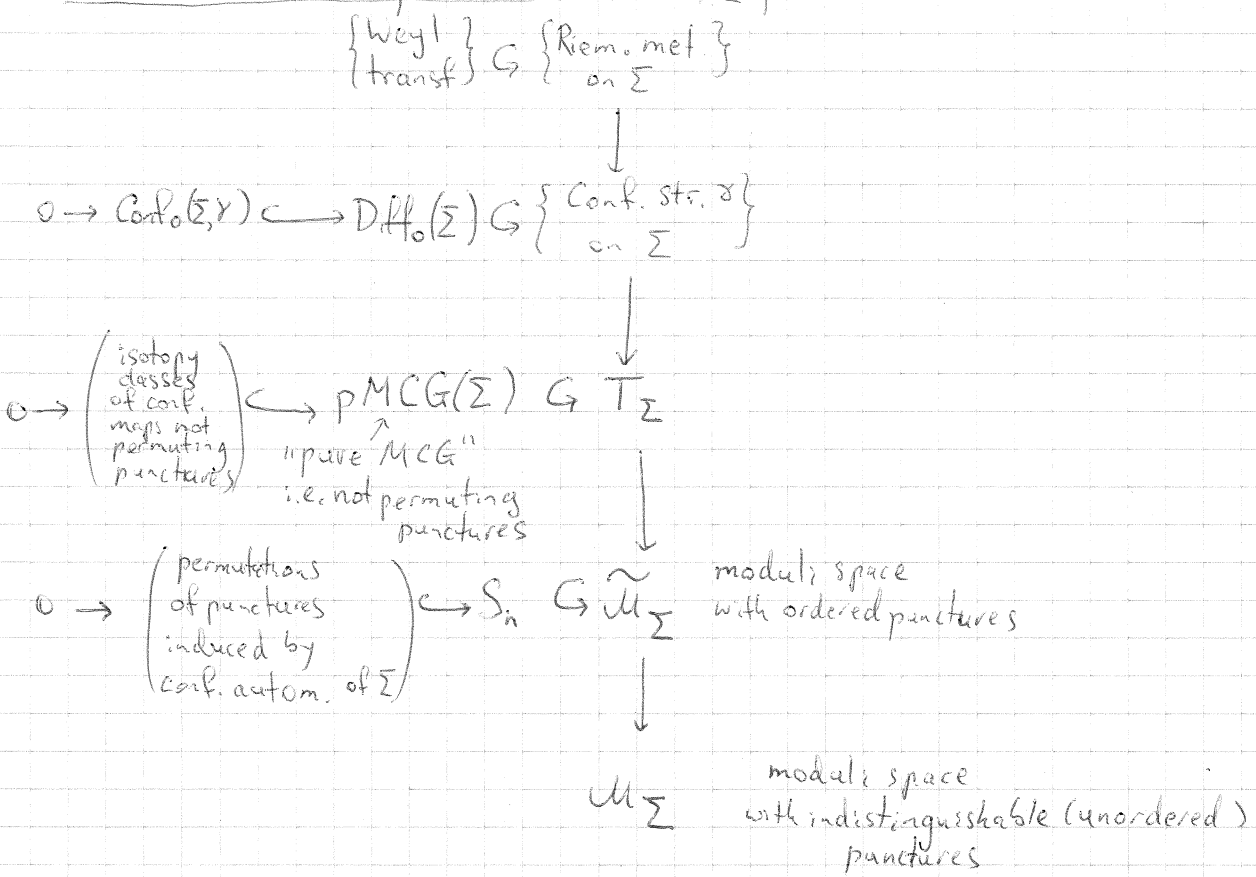 {Weyl transf} ↺ {Riem. met. on Σ}
↓
0 → Conf₀(Σ,γ) ↪ Diff₀(Σ) ↺ {Conf. str. γ on Σ}
↓
0 → (isotopy
classes
of conf.
maps not
permuting
punctures) ↪ pMCG(Σ) ↺ T_Σ
"pure MCG"
i.e. not permuting
punctures
↓
0 → (permutations
of punctures
induced by
conf. autom. of Σ) ↪ Sₙ ↺ M̃_Σ
moduli space
with ordered punctures
↓
M_Σ
moduli space
with indistinguishable (unordered)
punctures